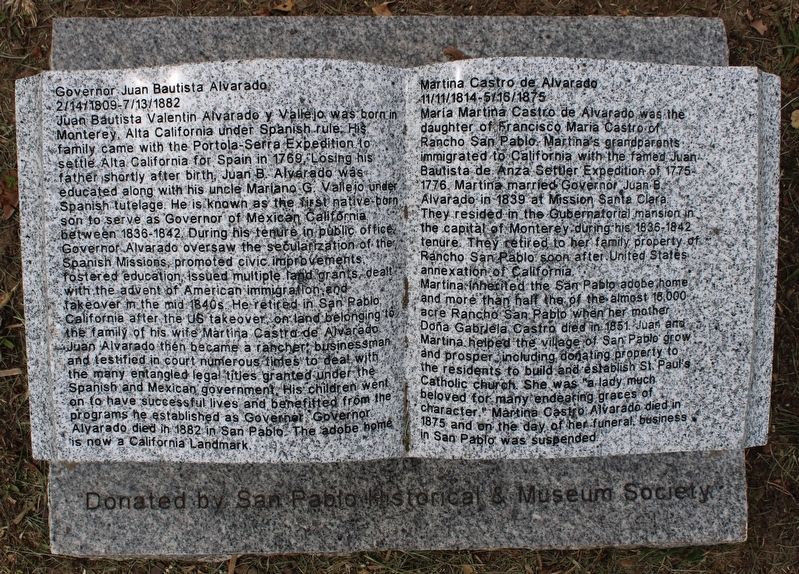 Governor Juan Bautista Alvarado
2/14/1809-7/13/1882
Juan Bautista Valentin Alvarado y Vallejo was born in
Monterey, Alta California under Spanish rule. His
family came with the Portola-Serra Expedition to
settle Alta California for Spain in 1769. Losing his
father shortly after birth, Juan B. Alvarado was
educated along with his uncle Mariano G. Vallejo under
Spanish tutelage. He is known as the first native-born
son to serve as Governor of Mexican California
between 1836-1842. During his tenure in public office,
Governor Alvarado oversaw the secularization of the
Spanish Missions, promoted civic improvements,
fostered education, issued multiple land grants, dealt
with the advent of American immigration and
takeover in the mid 1840s. He retired in San Pablo,
California after the US takeover, on land belonging to
the family of his wife Martina Castro de Alvarado.
Juan Alvarado then became a rancher, businessman
and testified in court numerous times to deal with
the many entangled legal titles granted under the
Spanish and Mexican government. His children went
on to have successful lives and benefitted from the
programs he established as Governor. Governor
Alvarado died in 1882 in San Pablo. The adobe home
is now a California Landmark.
Martina Castro de Alvarado
11/11/1814-5/15/1875
Maria Martina Castro de Alvarado was the
daughter of Francisco Maria Castro of
Rancho San Pablo. Martina's grandparents
immigrated to California with the famed Juan
Bautista de Anza Settler Expedition of 1775-
1776. Martina married Governor Juan B.
Alvarado in 1839 at Mission Santa Clara.
They resided in the Gubernatorial mansion in
the capital of Monterey during his 1836-1842
tenure. They retired to her family property of
Rancho San Pablo soon after United States
annexation of California.
Martina inherited the San Pablo adobe home
and more than half the of the almost 18,000
acre Rancho San Pablo when her mother
Doña Gabriela Castro died in 1851. Juan and
Martina helped the village of San Pablo grow
and prosper, including donating property to
the residents to build and establish St. Paul's
Catholic church. She was "a lady much
beloved for many endearing graces of
character." Martina Castro Alvarado died in
1875 and on the day of her funeral, business
in San Pablo was suspended.
Donated by San Pablo Historical & Museum Society